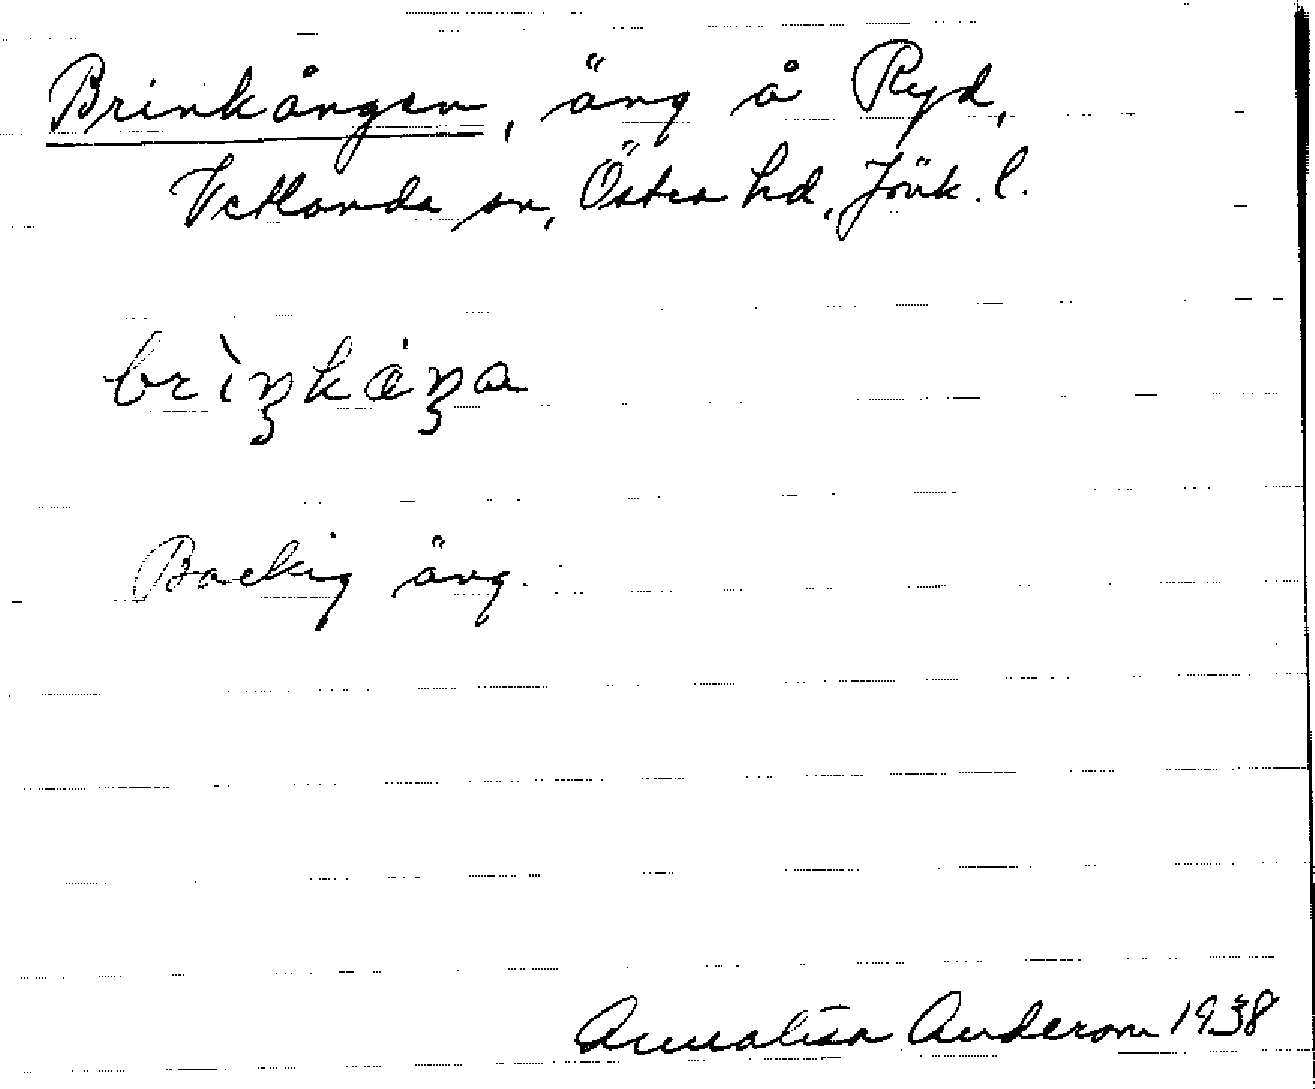 Brinkången, äng å Ryd,
Vetlanda sn, Östra hd, Jönk. l.
brìŋkáŋa
Backig äng.
Annalisa Anderson 1938